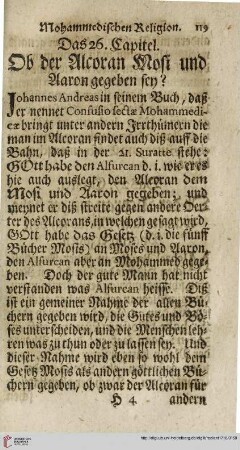 Mohammedischen Religion. 119
Das 26. Capitel.
Ob der Alcoran Mosi und
Aaron gegeben sey?
Johannes Andreas in seinem Buch, daß
er nennet Consusio sectæ Mohammedi-
cæ bringt unter andern Irrthümern die
man im Alcoran findet auch diß auff die
Bahn, daß in der 21. Suratte stehe:
GOtt habe den Alfurcan d. i. wie er es
hie auch auslegt, den Alcoran dem
Mosi und Aaron gegeben; und
meynet er diß streite gegen andere Oer-
ter des Alcorans, in welchen gesagt wird,
GOtt habe das Gesetz (d. i. die fünff
Bücher Mosis) an Moses und Aaron,
den Alfurcan aber an Mohammed gege-
ben. Doch der gute Mann hat nicht
verstanden was Alfurcan heisse. Diß
ist ein gemeiner Nahme der allen Bü-
chern gegeben wird, die Gutes und Bö-
ses unterscheiden, und die Menschen leh-
ren was zu thun oder zu lassen sey. Und
dieser Nahme wird eben so wohl dem
Gesetz Mosis als andern göttlichen Bü-
chern gegeben, ob zwar der Alcoran für
H 4 andern